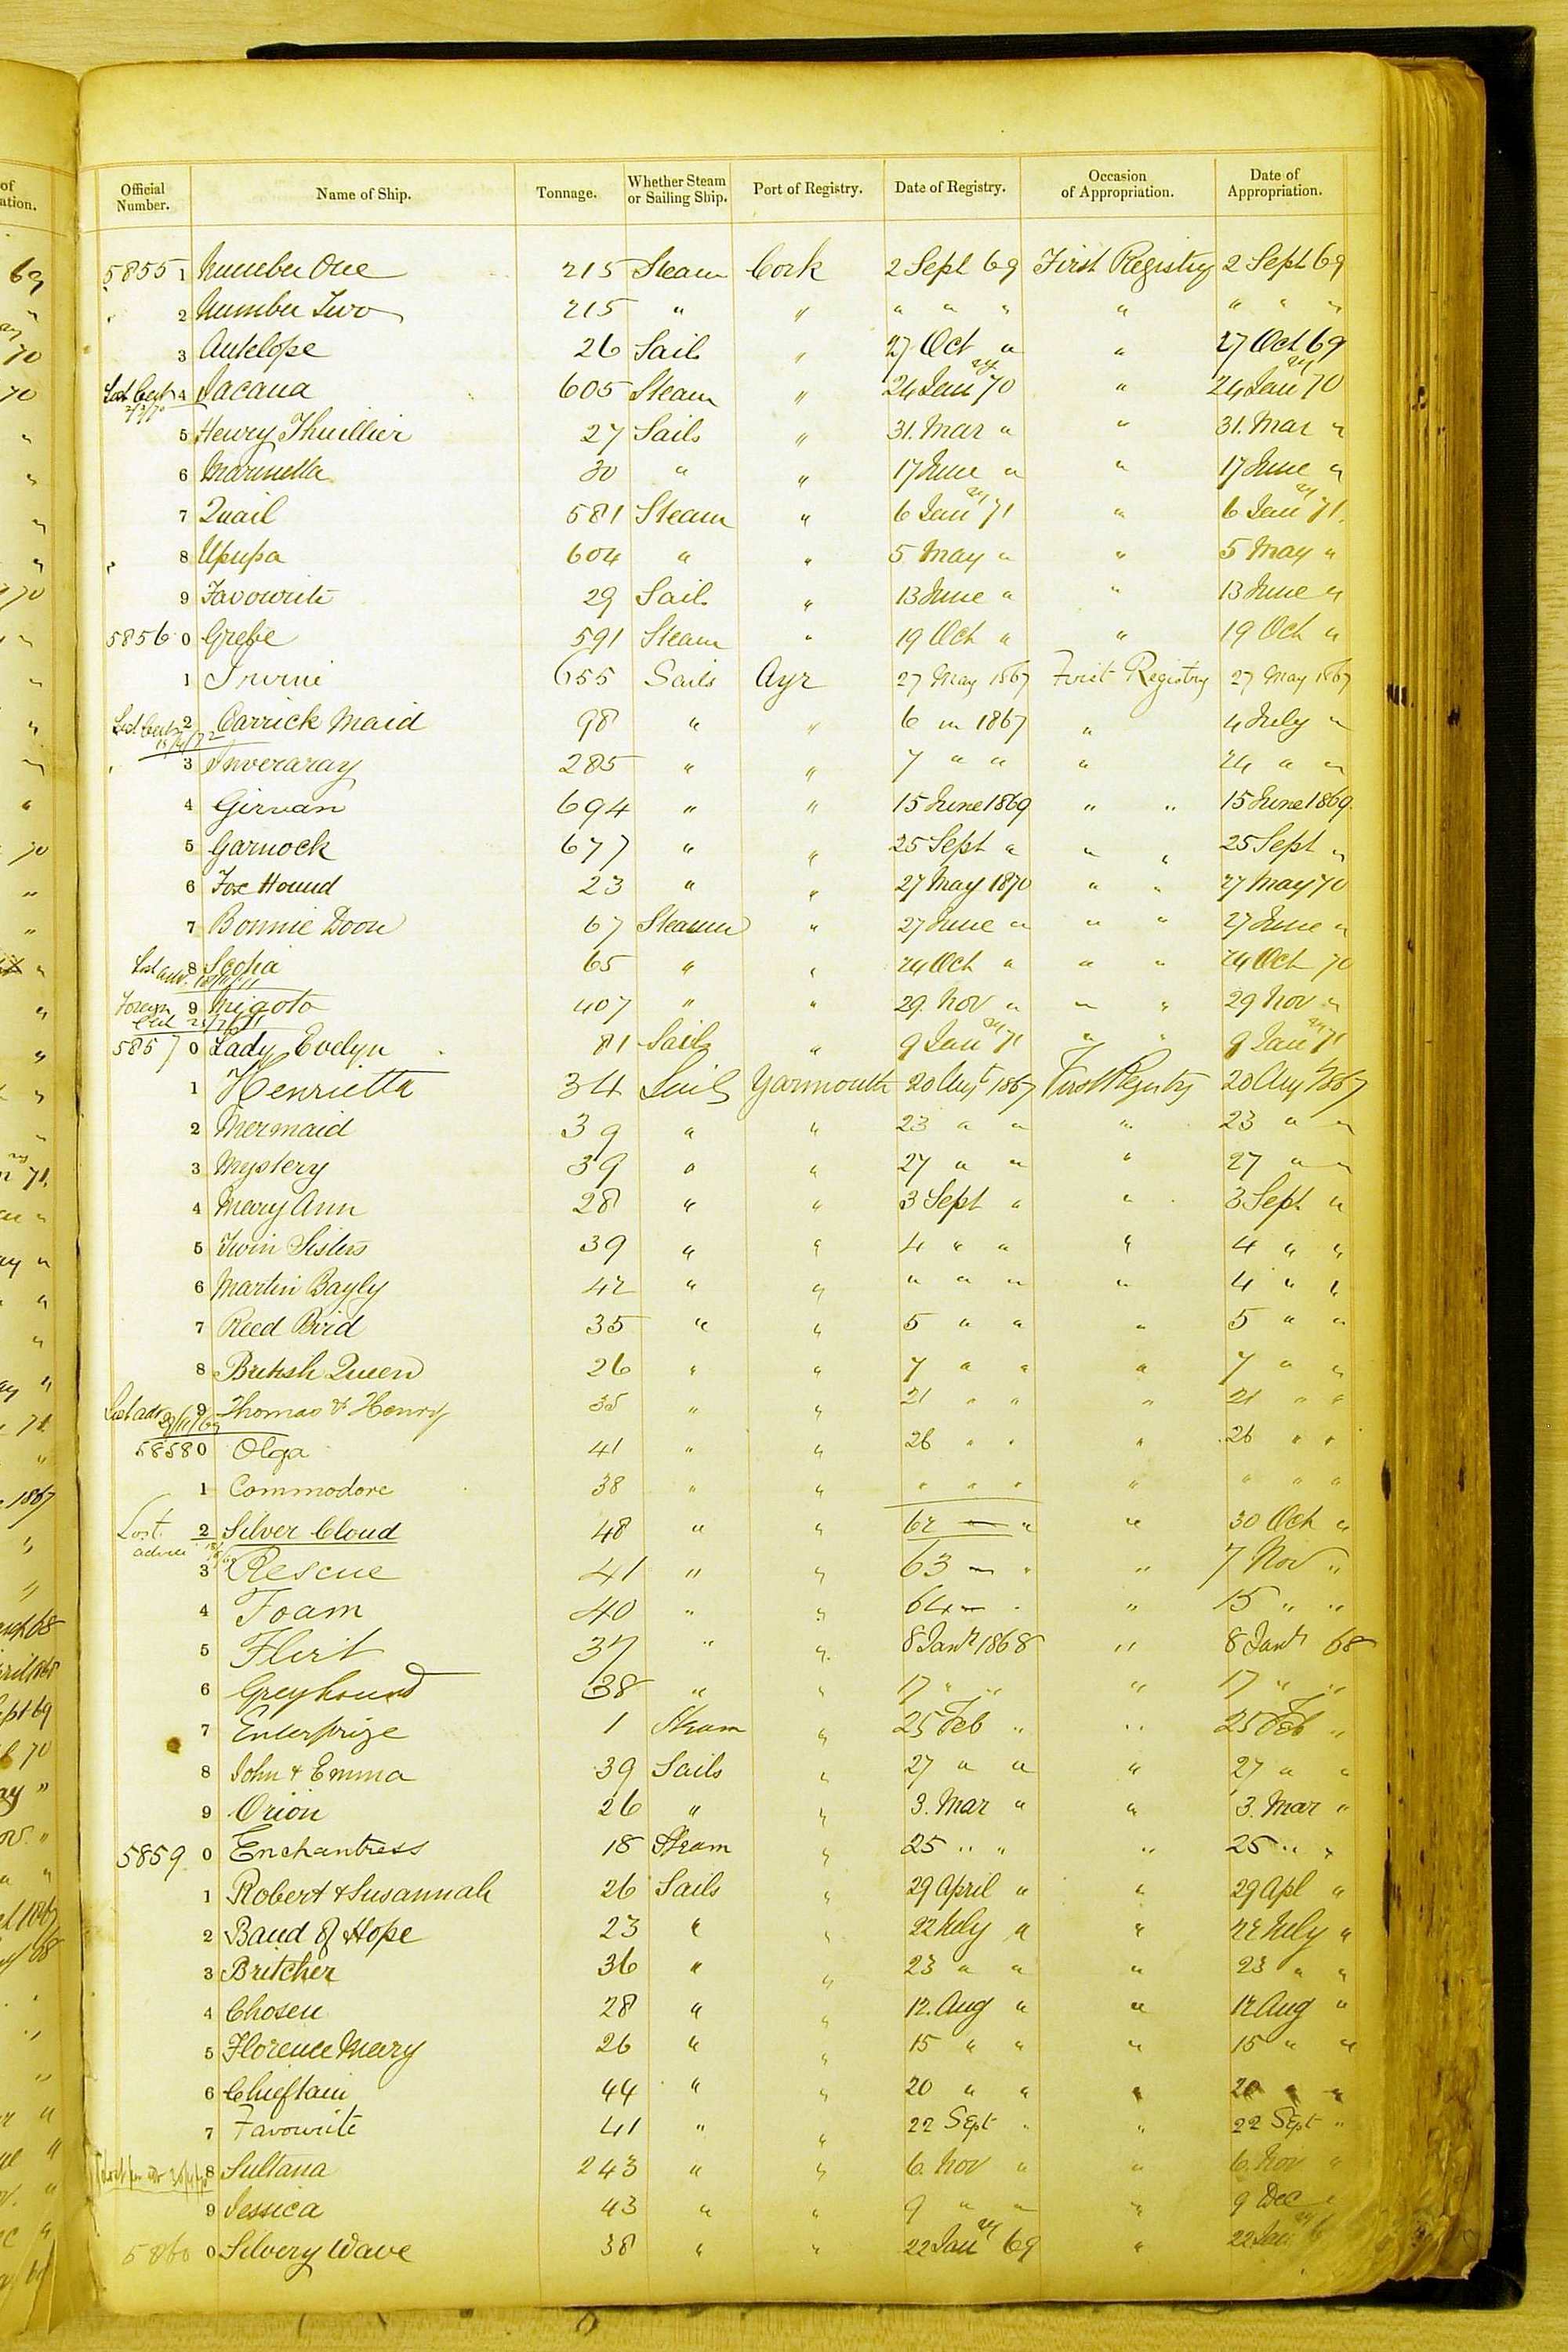 Official Number. Name of Ship. Tonnage. Whether Steam or Sailing Ship. Port of Registry. Date of Registry. Occasion of Appropriation. Date of Appropriation.
58551 Number One 215 Steam Cork 2 Sept 69 First Registry 2 Sept 69
2 Number Two 215 " " " " " " " " "
3 Antelope 26 Sail " 27 Oct " " 27 Oct 69
4 Jacana 605 Steam " 24 Jany 70 " 24 Jany 70
5 Henry Thuillier 27 Sails " 31. Mar " " 31. Mar "
6 Marinetta 30 " " 17 June " " 17 June "
7 Quail 581 Steam " 6 Jany 71 " 6 Jany 71.
8 Upupa 604 " " 5 May " " 5 May "
9 Favourite 29 Sail " 13 June " " 13 June "
58560 Grebe 591 Steam " 19 Oct " " 19 Oct "
1 Irvine 655 Sails Ayr 27 May 1867 First Registry 27 May 1867
2 Carrick Maid 98 " " 6 in 1867 " 4 July "
3 Inveraray 285 " " 7 " " " 24 " "
4 Girvan 694 " " 15 June 1869 " " 15 June 1869
5 Garnock 677 " " 25 Sept " " " 25 Sept "
6 Fox Hound 23 " " 27 May 1870 " " 27 May 70
7 Bonnie Doon 67 Steam " 27 June " " " 27 June "
8 Scotia 65 " " 24 Oct " " " 24 Oct 70
9 Migoto 407 " " 29. Nov " " " 29 Nov "
58570 Lady Evelyn 81 Sails " 9 Jany 71 " " 9 Jany 71
1 Henrietta 34 Sails Yarmouth 20 Augt 1867 First Registry 20 Aug 1867
2 Mermaid 39 " " 23 " " " 23 " "
3 Mystery 39 " " 27 " " " 27 " "
4 Mary Ann 28 " " 3 Sept " " 3 Sept "
5 Twin Sisters 39 " " 4 " " " 4 " "
6 Martin Bayly 42 " " " " " " 4 " "
7 Reed Bird 35 " " 5 " " " 5 " "
8 British Queen 26 " " 7 " " " 7 " "
9 Thomas & Henry 35 " " 21 " " " 21 " "
58580 Olga 41 " " 26 " " " 26 " "
1 Commodore 38 " " " " " " " " "
Lost advice 2 Silver Cloud 48 " " 62 — " " 30 Oct "
3 Rescue 41 " " 63 — " " 7 Nov "
4 Foam 40 " " 64 — " " 15 " "
5 Flirt 37 " " 8 Jany 1868 " 8 Jany 68
6 Greyhound 38 " " 17 " " " 17 " "
7 Enterprize 1 Steam " 25 Feb " " 25 Feb "
8 John & Emma 39 Sails " 27 " " " 27 " "
9 Orion 26 " " 3. Mar " " 3. Mar "
58590 Enchantress 18 Steam " 25 " " " 25 " "
1 Robert & Susannah 26 Sails " 29 April " " 29 Apl "
2 Band of Hope 23 " " 22 July " " 22 July "
3 Britcher 36 " " 23 " " " 23 " "
4 Chosen 28 " " 12. Aug " " 12 Aug "
5 Florence Mary 26 " " 15 " " " 15 " "
6 Chieftain 44 " " 20 " " " 20 " "
7 Favourite 41 " " 22 Sept " " 22 Sept "
8 Sultana 243 " " 6. Nov " " 6. Nov "
9 Jessica 43 " " 9 " " " 9 Dec "
58600 Silvery Wave 38 " " 22 Jany 69 " 22 Jany